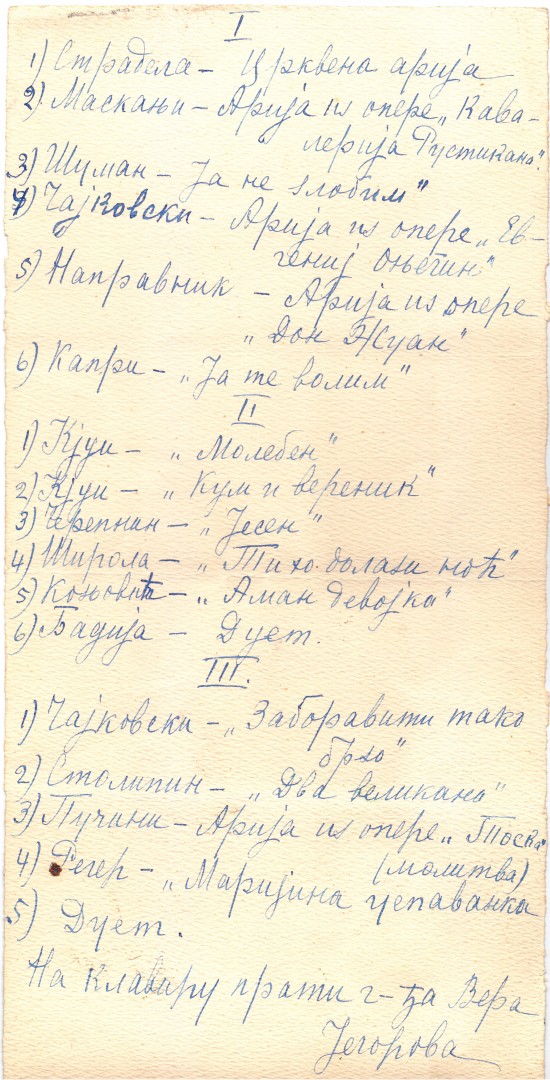 I
1) Страдела – Црквена арија
2) Маскањи – Арија из опере „Кава-
лерија Рустикана".
3) Шуман – Ја не злобим"
4) Чајковски – Арија из опере „Ев-
гениј Оњегин"
5) Направник – Арија из опере
„Дон Жуан"
6) Капри – „Ја те волим"
II
1) Кјуи – „Молебен"
2) Кјуи – „Кум и вереник"
3) Черепнин – „Јесен"
4) Широла – „Тихо долази ноћ"
5) Коњовић – „Аман девојка"
6) Бадија – Дует.
III.
1) Чајковски – „Заборавити тако
брзо"
2) Столипин – „Два великана"
3) Пучини – Арија из опере „Тоска"
(молитва)
4) Регер – „Маријина успаванка
5) Дует.
На клавиру прати г-ђа Вера
Јегорова